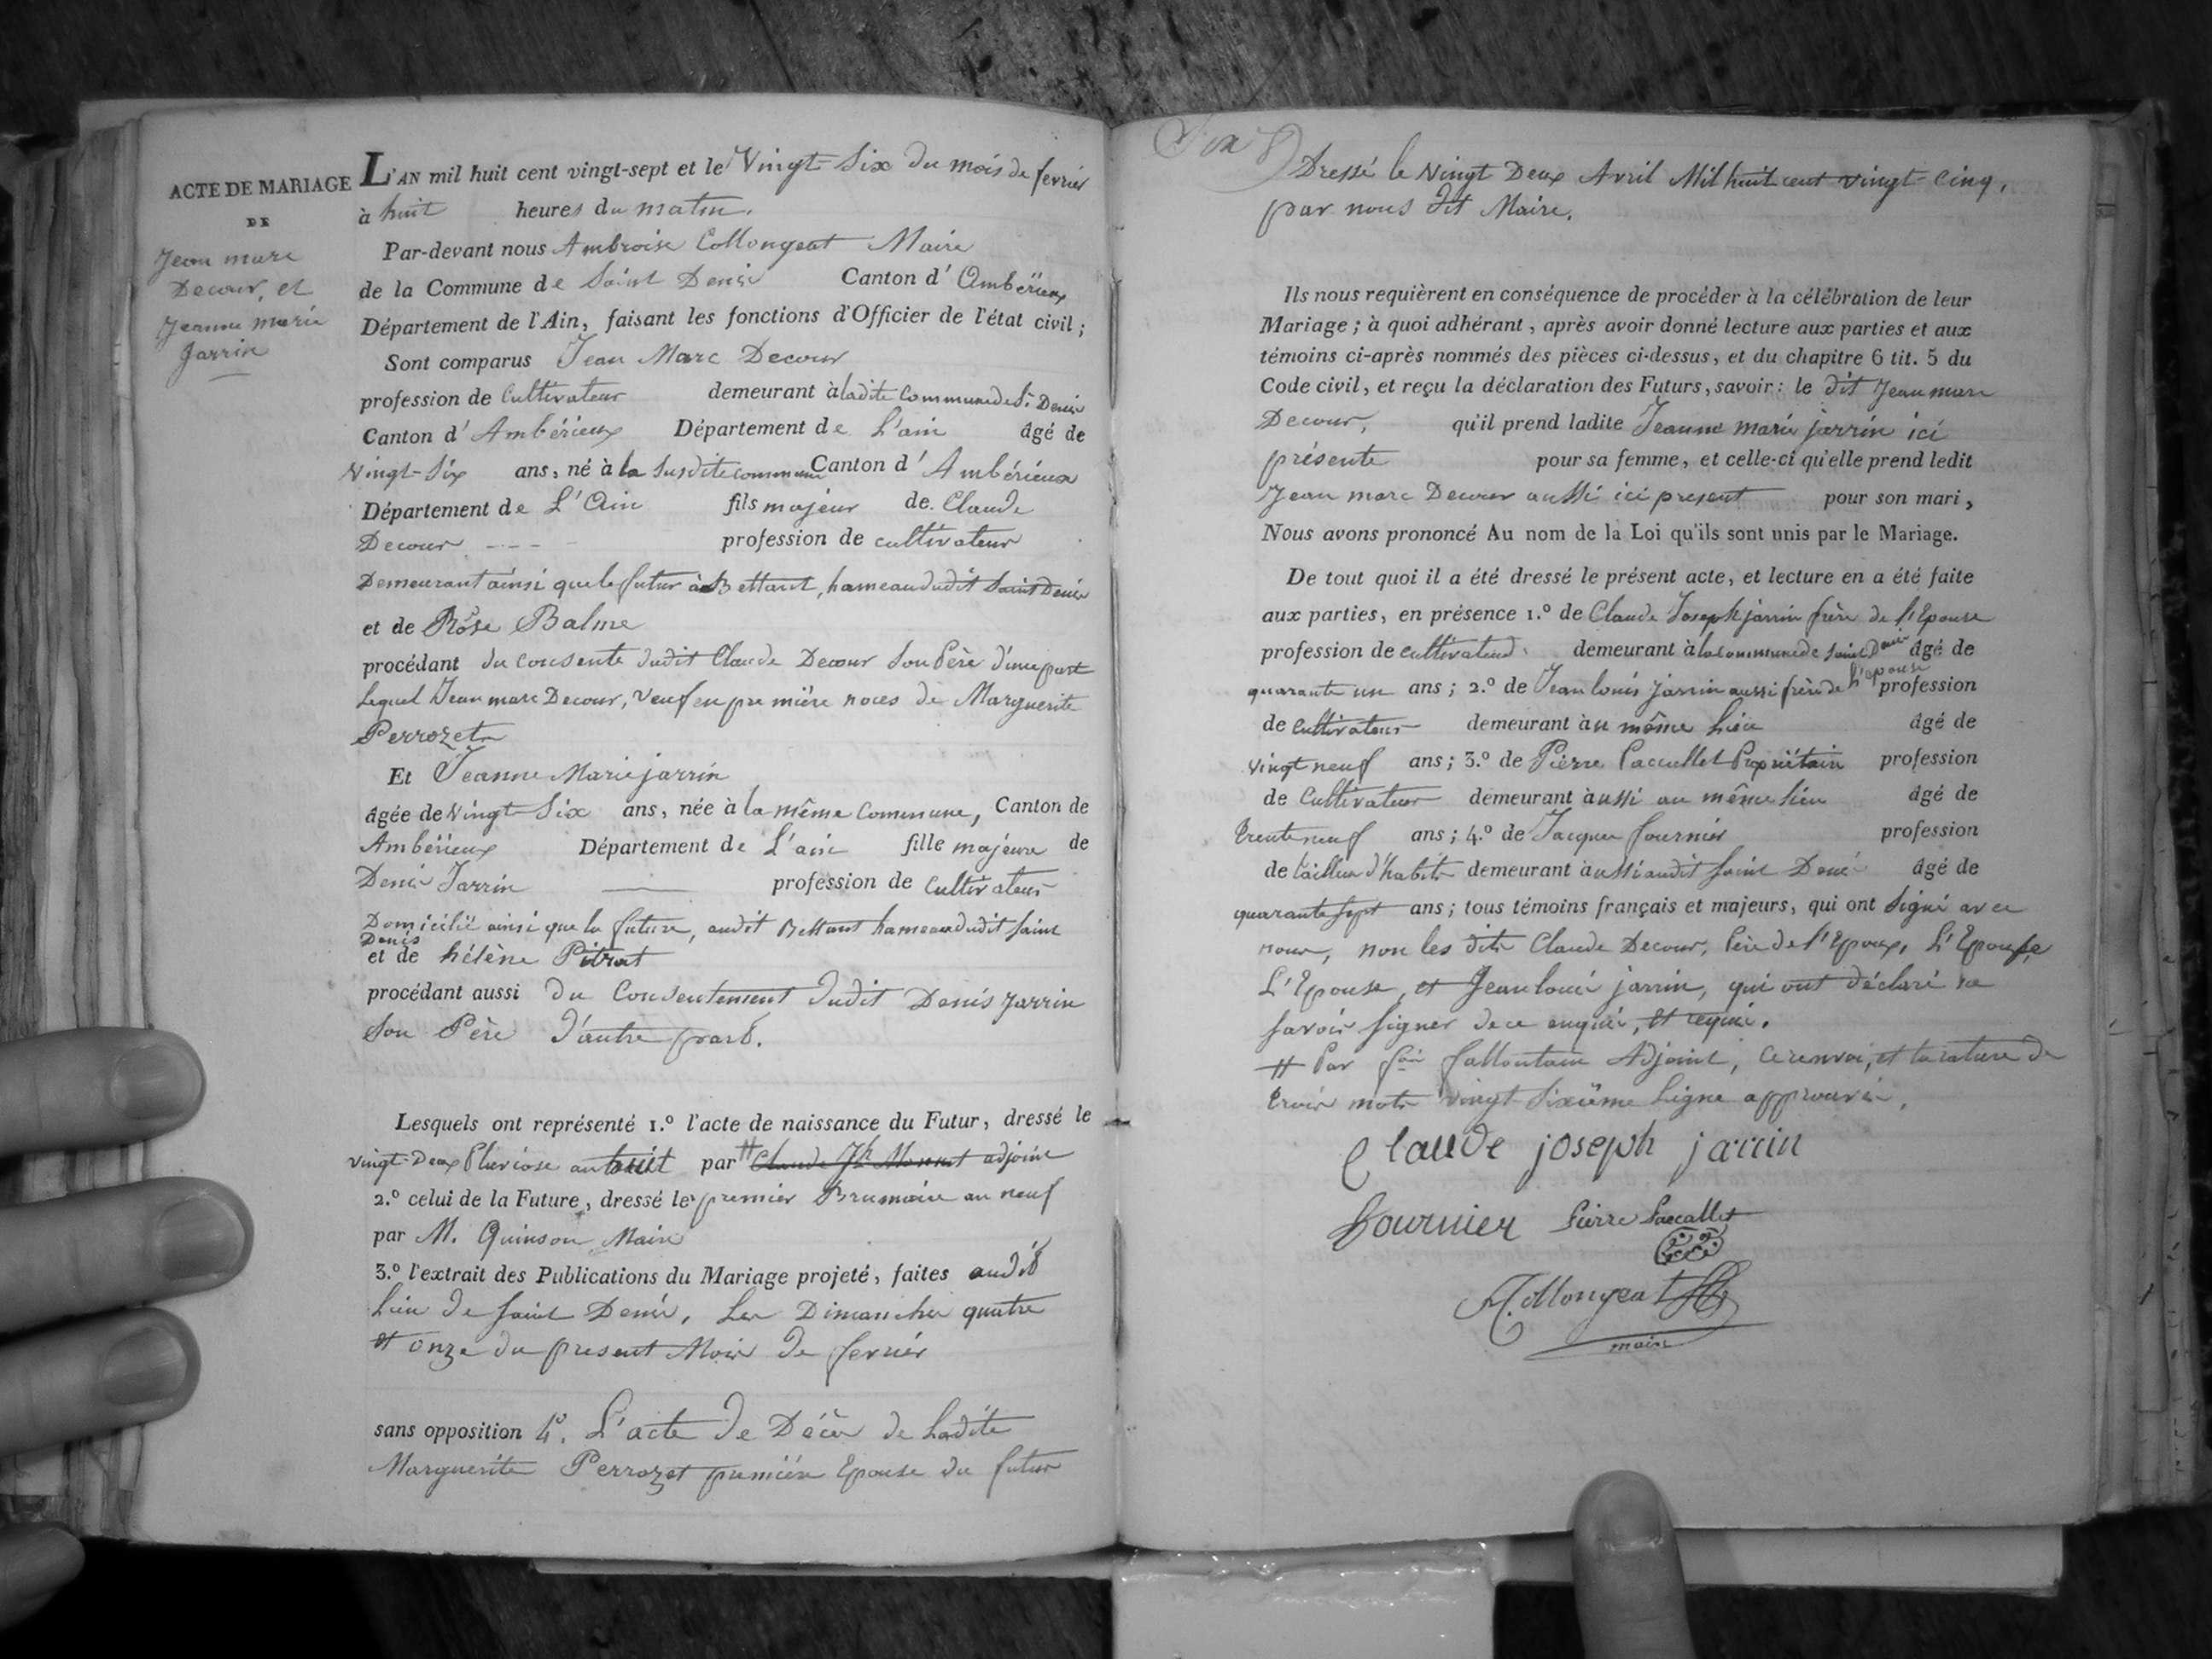 ACTE DE MARIAGE
DE
Jean marc
Decour, et
Jeanne marie
Jarrin
L'AN mil huit cent vingt-sept et le Vingt-Six du mois de fevrier
à huit heures du matin.
Par-devant nous Ambroise Collongeat Maire
de la Commune de Saint Denis Canton d'Ambérieux
Département de l'Ain, faisant les fonctions d'Officier de l'état civil;
Sont comparus Jean Marc Decour
profession de Cultivateur demeurant à ladite Commune de St Denis
Canton d'Ambérieux Département de L'ain âgé de
Vingt-Six ans, né à la susdite commune Canton d'Ambérieux
Département de L'Ain fils majeur de Claude
Decour profession de cultivateur
Demeurant ainsi que le futur à Bettant, hameau dudit Saint Denis
et de Rose Balme
procédant du consente dudit Claude Decour Son Père d'une part
Lequel Jean marc Decour, Veuf en première noces de Marguerite
Perrozet
Et Jeanne Marie jarrin
âgée de Vingt-Six ans, née à la même Commune, Canton de
Ambérieux Département de L'ain fille majeure de
Denis Jarrin profession de Cultivateur
Domicilié ainsi que la future, audit Bettant hameau dudit Saint
Denis
et de hélène Pitrat
procédant aussi du Consentement dudit Denis Jarrin
Son Père d'autre part.
Lesquels ont représenté 1.º l'acte de naissance du Futur, dressé le
vingt-Deux Pluviose an huit par # Claude Jh adjoint
2.º celui de la Future, dressé le premier Brumaire an neuf
par M. Quinson Maire
3.º l'extrait des Publications du Mariage projeté, faites audit
Lieu de Saint Denis, Les Dimanches quatre
et onze du present Mois de fevrier
sans opposition 4º. L'acte de Décès de Ladite
Marguerite Perrozet première Epouse du futur
Dressé le Vingt Deux Avril Mil huit cent vingt-Cinq,
par nous dit Maire.
Ils nous requièrent en conséquence de procéder à la célébration de leur
Mariage; à quoi adhérant, après avoir donné lecture aux parties et aux
témoins ci-après nommés des pièces ci-dessus, et du chapitre 6 tit. 5 du
Code civil, et reçu la déclaration des Futurs, savoir: le dit Jean marc
Decour, qu'il prend ladite Jeanne marie jarrin ici
présente pour sa femme, et celle-ci qu'elle prend ledit
Jean marc Decour aussi ici present pour son mari,
Nous avons prononcé Au nom de la Loi qu'ils sont unis par le Mariage.
De tout quoi il a été dressé le présent acte, et lecture en a été faite
aux parties, en présence 1.º de Claude Joseph jarrin frère de l'Epouse
profession de cultivateur demeurant à la commune de Saint Denis âgé de
quarante un ans; 2.º de Jean louis jarrin aussi frère de l'epouse profession
de Cultivateur demeurant au même Lieu âgé de
vingt neuf ans; 3.º de Pierre Paccallet Propriétaire profession
de Cultivateur demeurant aussi au même lieu âgé de
trente neuf ans; 4.º de Jacques fournier profession
de tailleur d'habits demeurant aussi audit Saint Denis âgé de
quarante Sept ans; tous témoins français et majeurs, qui ont Signé avec
nous, non les dits Claude Decour, Père de l'Epoux, L'Epouse
L'Epouse, et Jean louis jarrin, qui ont déclaré ne
Savoir Signer de ce enquis, et requis.
# Par Adjoint, Ce renvoi, et la rature de
trois mots vingt Sixième Ligne approuvés.
Claude joseph jarrin
Fournier Pierre Paccallet
A. Collongeat
maire